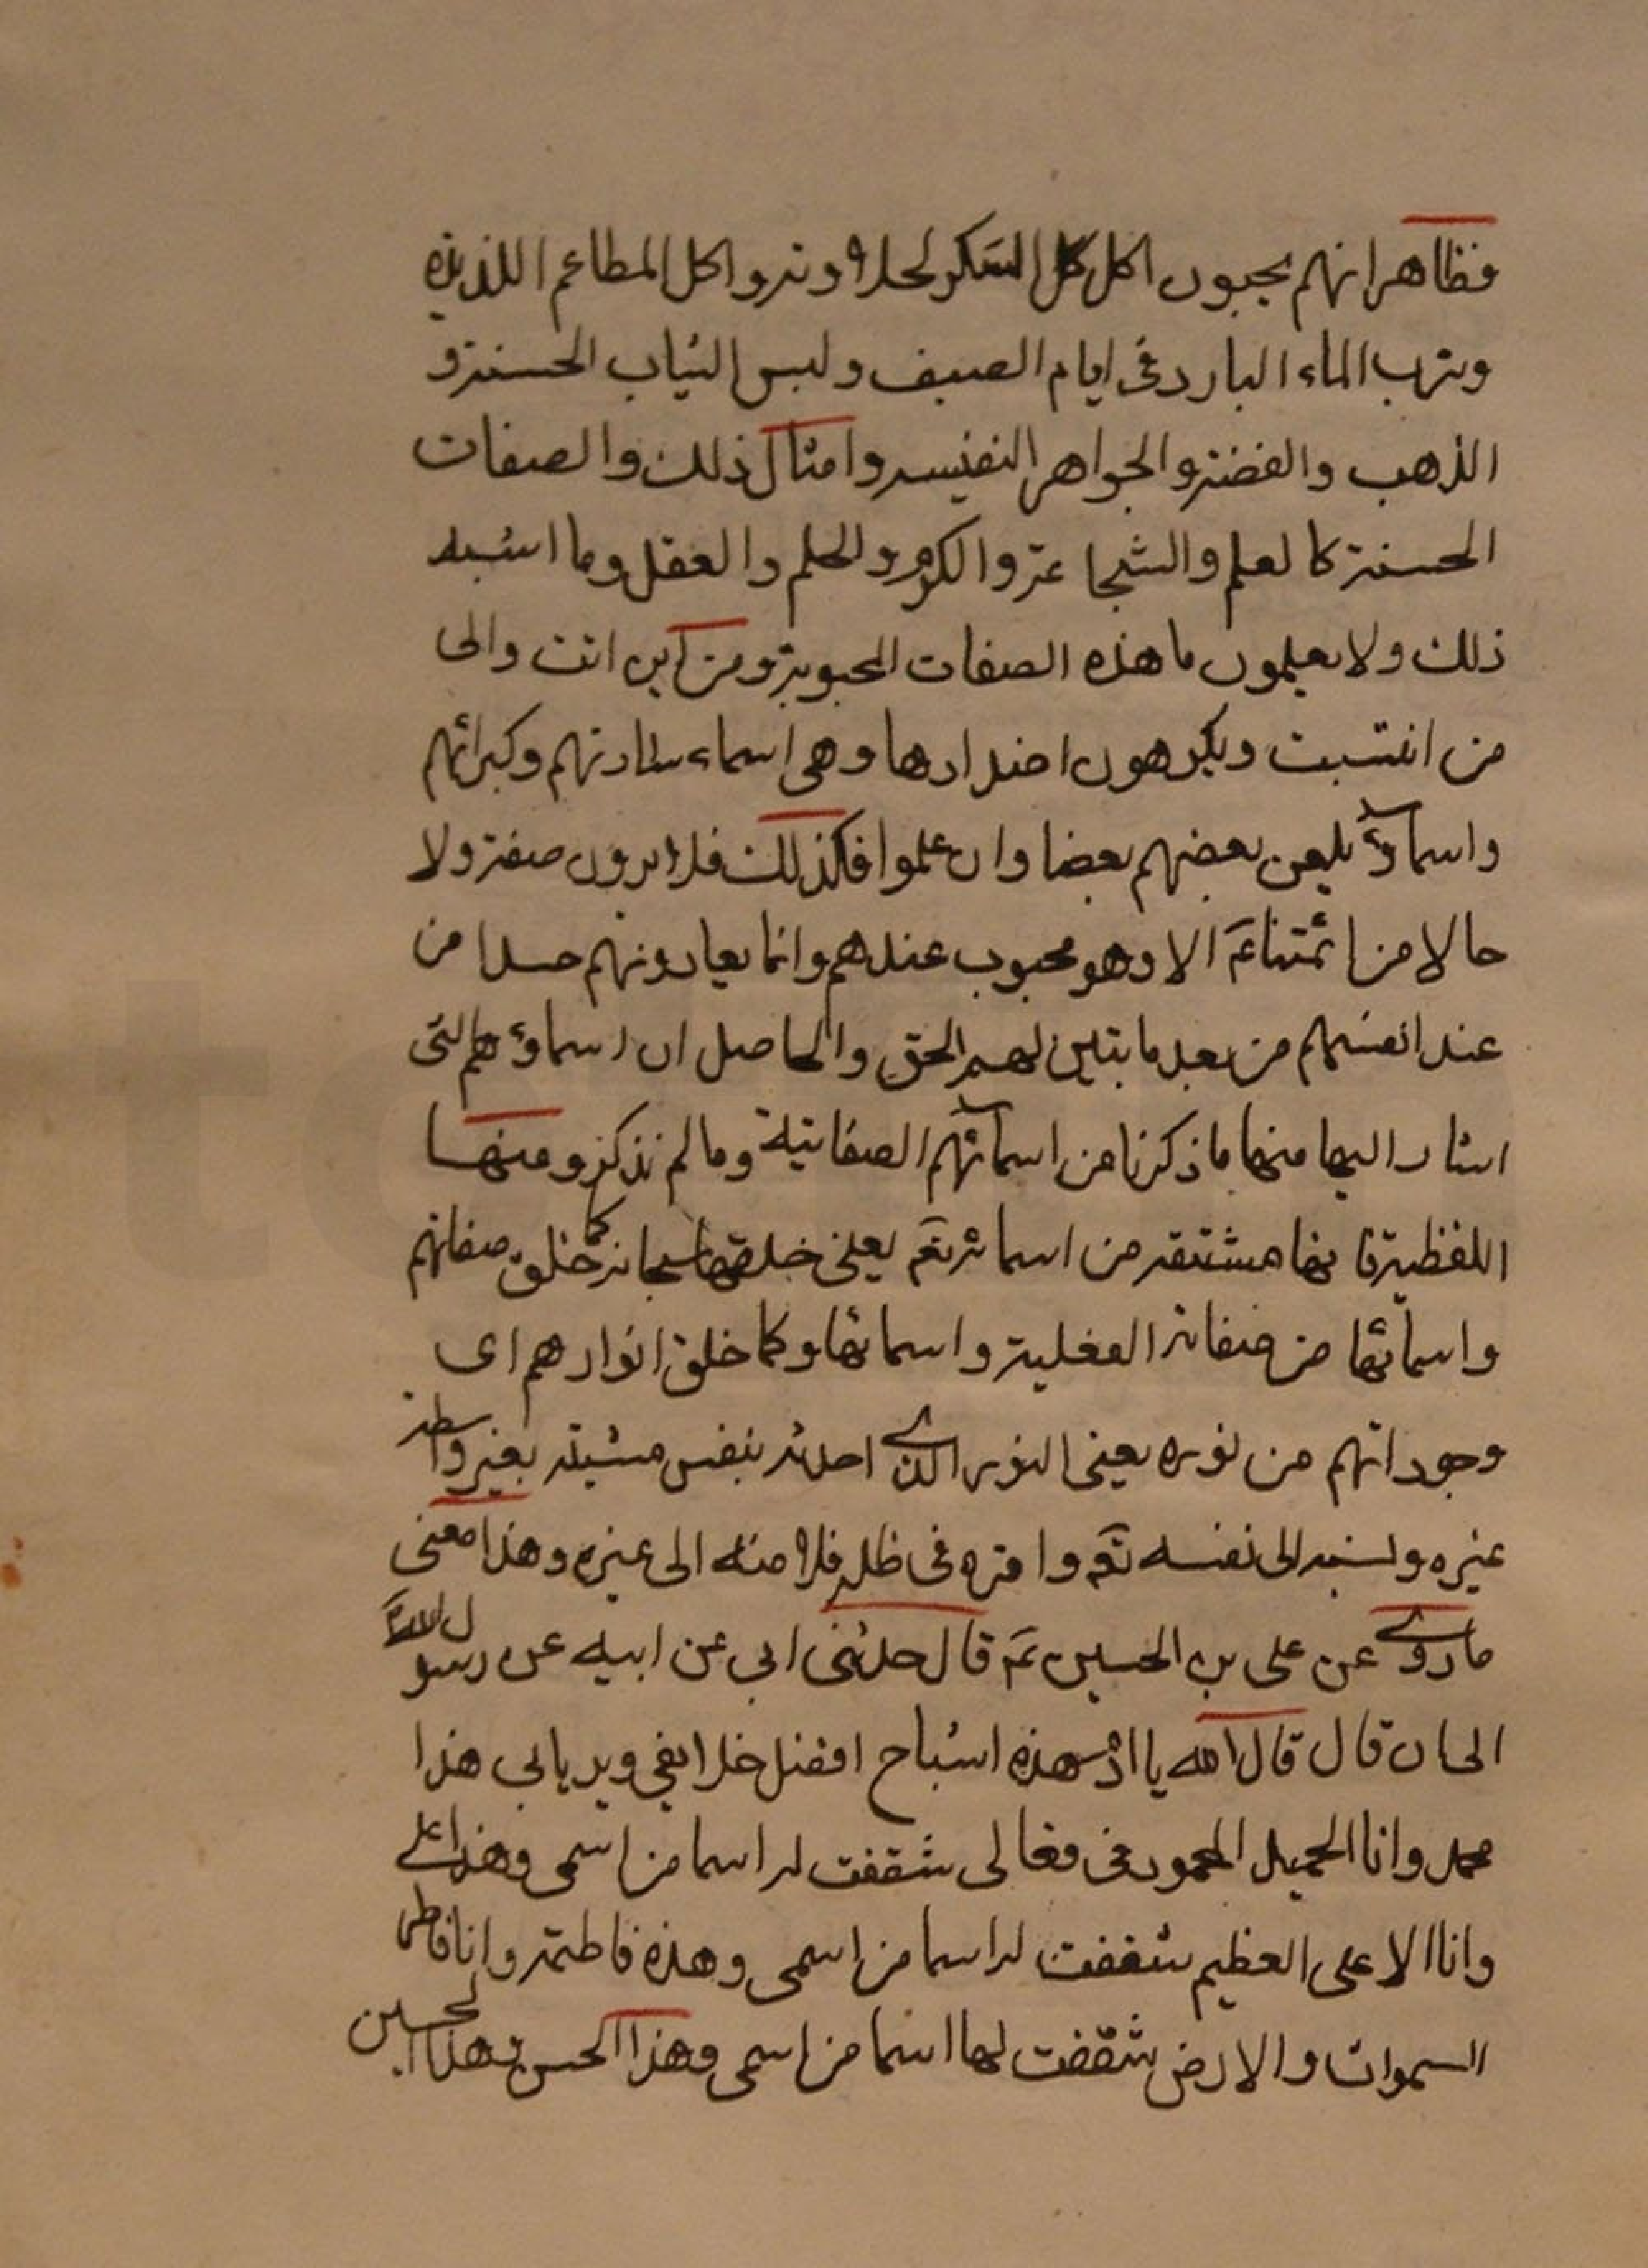 فظاهر انهم يحبون اكل كل السكر لحلاوته واكل المطاعم اللذيذة
وشرب الماء البارد فى ايام الصيف ولبس الثياب الحسنة و
الذهب والفضة والجواهر النفيسه وامثال ذلك والصفات
الحسنة كالعلم والشجاعة والكرم والحلم والعقل وما اشبه
ذلك ولا يعلمون ما هذه الصفات المحبوبة ومن اين اتت والى
من انتسبت ويكرهون اضدادها وهى اسماء ساداتهم وكبرائهم
واسماء يلعن بعضهم بعضا وان علموا فكذلك فلا يرون صفة ولا
حالا من ائمتنا عم الا وهو محبوب عندهم وانما يعادونهم حسدا من
عند انفسهم من بعد ما تبين لهم الحق والحاصل ان اسماؤهم التى
اشار اليها منها ما ذكرنا من اسمائهم الصفاتية وما لم نذكر ومنها
اللفظية فانها مشتقة من اسمائه تعم يعنى خلقها سبحانه كما خلق صفاتهم
واسمائها من صفاته الفعلية واسمائها وكما خلق انوارهم اى
وجوداتهم من نوره يعنى النور الذى احدثه بنفس مشيته بغير واسطة
غيره ونسبه الى نفسه تعم واقره فى ظله فلا منه الى غيره وهذا معنى
ما روى عن على بن الحسين عم قال حدثنى ابى عن ابيه عن رسول الله ص
الى ان قال قال الله يا ادم هذه اشباح افضل خلايقى وبرياتى هذا
محمد وانا الحميد المحمود فى فعالى شققت له اسما من اسمى وهذا على
وانا الاعلى العظيم شققت له اسما من اسمى وهذه فاطمة وانا فاطر
السموات والارض شققت لها اسما من اسمى وهذا الحسن وهذا الحسين